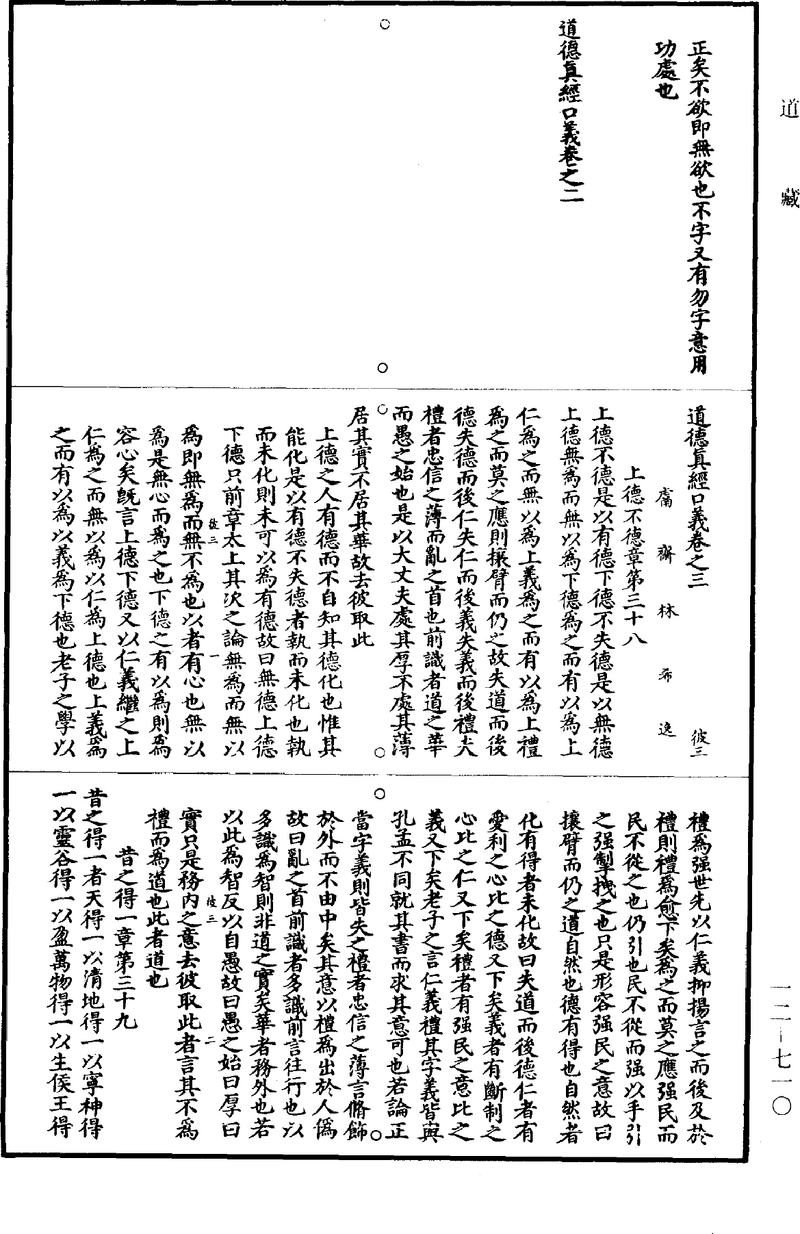 道藏
正矣不欲即無欲也不字又有勿字意用
功處也
道德真經口義卷之二
道德真經口義卷之三
彼三
鬳齋林希逸
上德不德章第三十八
上德不德是以有德下德不失德是以無德
上德無為而無以為下德為之而有以為上
仁為之而無以為上義為之而有以為上禮
為之而莫之應則攘臂而仍之故失道而後
德失德而後仁失仁而後義失義而後禮夫
禮者忠信之薄而亂之首也前識者道之華
而愚之始也是以大丈夫處其厚不處其薄
居其實不居其華故去彼取此
上德之人有德而不自知其德化也惟其
能化是以有德不失德者執而未化也執
而未化則未可以為有德故曰無德上德
下德只前章太上其次之論無為而無以
彼三
一
為即無為而無不為也以者有心也無以
為是無心而為之也下德之有以為則為
容心矣既言上德下德又以仁義繼之上
仁為之而無以為以仁為上德也上義為
之而有以為以義為下德也老子之學以
禮為强世先以仁義抑揚言之而後及於
禮則禮為愈下矣為之而莫之應强民而
民不從之也仍引也民不從而强以手引
之强掣拽之也只是形容强民之意故曰
攘臂而仍之道自然也德有得也自然者
化有得者未化故曰失道而後德仁者有
愛利之心比之德又下矣義者有斷制之
心比之仁又下矣禮者有强民之意比之
義又下矣老子之言仁義禮其字義皆與
孔孟不同就其書而求其意可也若論正
當字義則皆失之禮者忠信之薄言脩飾
於外而不由中矣其意以禮為出於人偽
故曰亂之首前識者多識前言往行也以
多識為智則非道之實矣華者務外也若
以此為智反以自愚故曰愚之始曰厚曰
彼三
二
實只是務內之意去彼取此者言其不為
禮而為道也此者道也
昔之得一章第三十九
昔之得一者天得一以清地得一以寧神得
一以靈谷得一以盈萬物得一以生侯王得
一二—七一〇